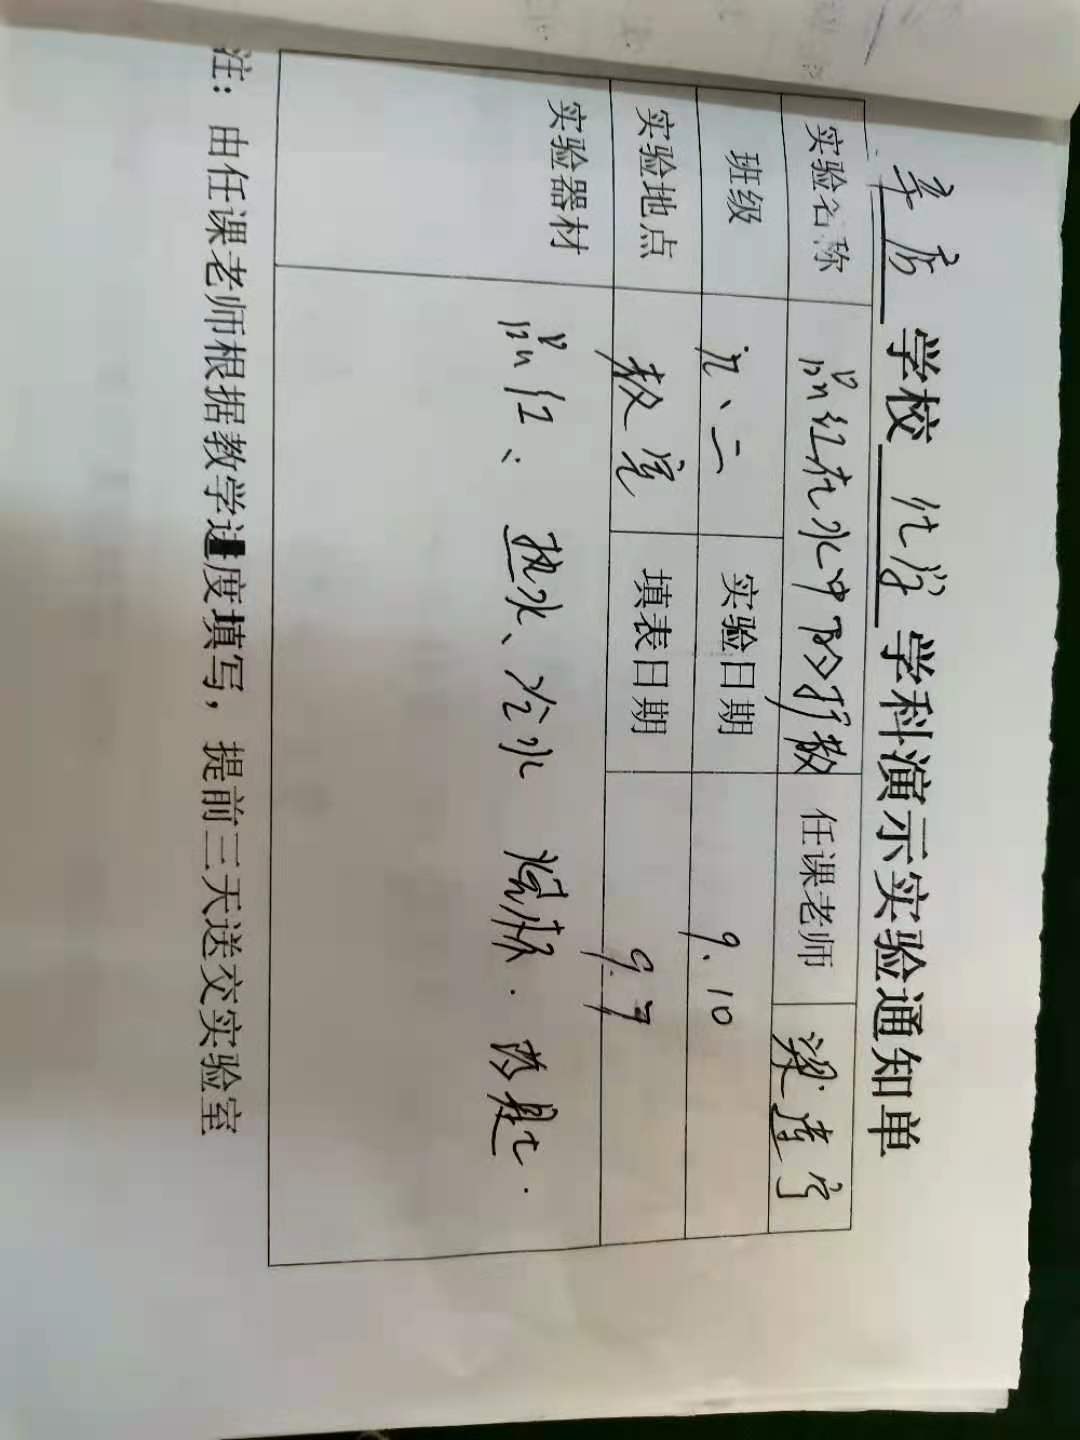 学校 化学 学科演示实验通知单
实验名称 品红在水中的扩散 任课老师
班级 九、二 实验日期 9.10
实验地点 教室 填表日期 9.7
实验器材 品红、热水、冷水 烧杯. 药匙.
注：由任课老师根据教学进度填写，提前三天送交实验室